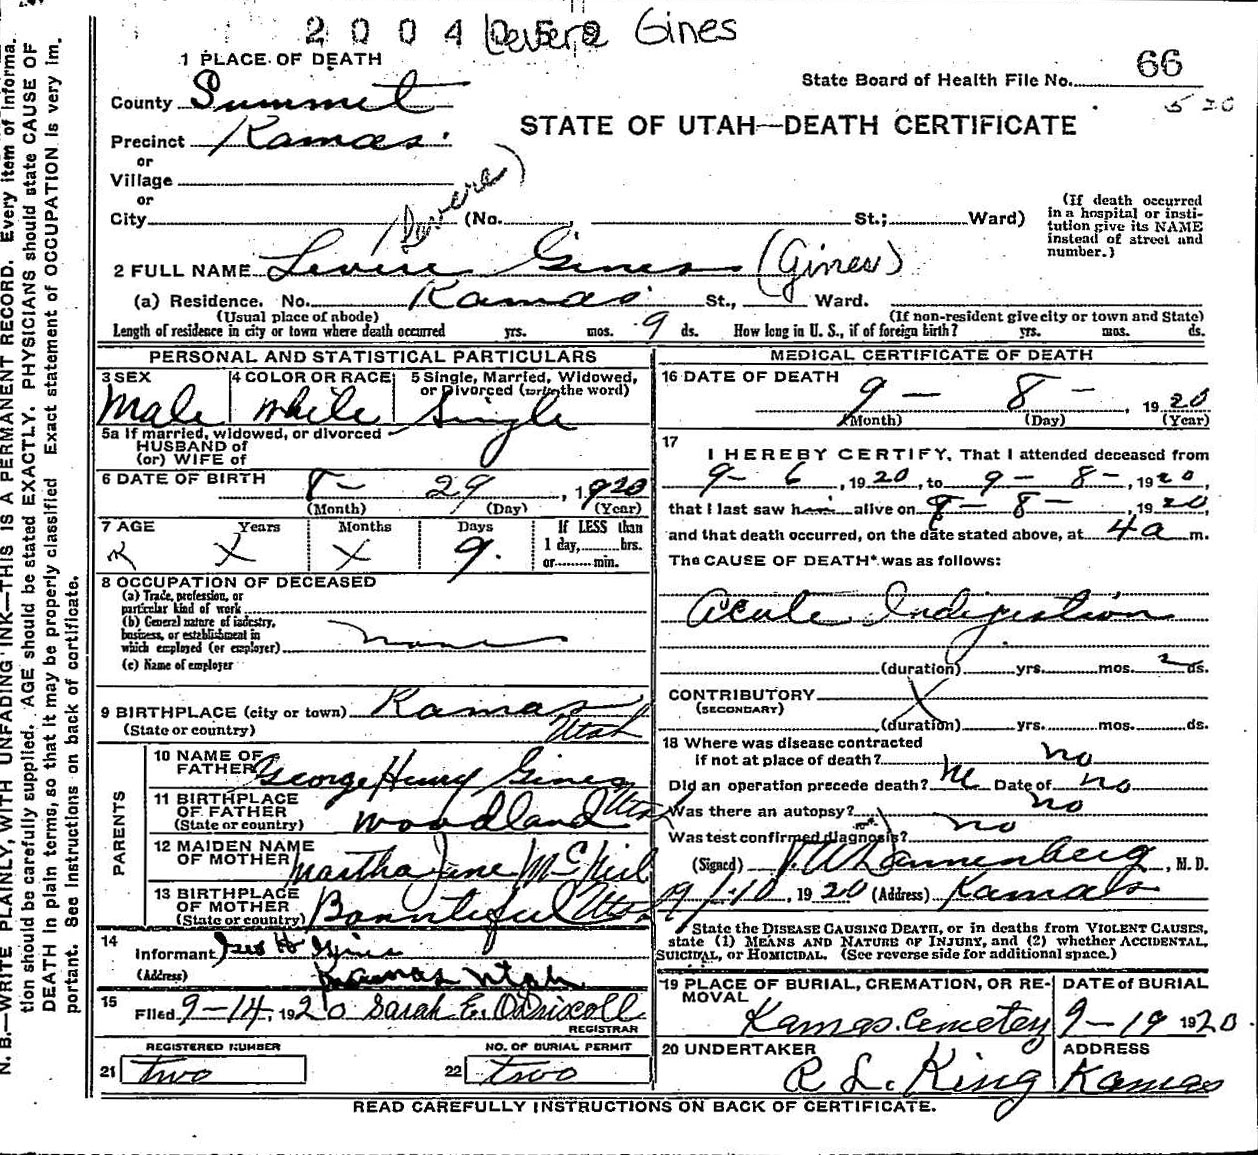 2004 Devere Gines
1 PLACE OF DEATH
State Board of Health File No. 66
County Summit
5 20
STATE OF UTAH—DEATH CERTIFICATE
Precinct Kamas
or
Village
or
City (No. , St.; Ward)
(Devere)
(If death occurred in a hospital or institution give its NAME instead of street and number.)
2 FULL NAME Levire Gines (Gines)
(a) Residence. No. Kamas St., Ward.
(Usual place of abode) (If non-resident give city or town and State)
Length of residence in city or town where death occurred yrs. mos. 9 ds. How long in U. S., if of foreign birth? yrs. mos. ds.
PERSONAL AND STATISTICAL PARTICULARS
3 SEX 4 COLOR OR RACE 5 Single, Married, Widowed, or Divorced (write the word)
Male White Single
5a If married, widowed, or divorced
HUSBAND of
(or) WIFE of
6 DATE OF BIRTH 8- 29, 1920
(Month) (Day) (Year)
7 AGE Years Months Days If LESS than
X X 9. 1 day, hrs.
or min.
8 OCCUPATION OF DECEASED
(a) Trade, profession, or
particular kind of work
(b) General nature of industry,
business, or establishment in
which employed (or employer) none
(c) Name of employer
9 BIRTHPLACE (city or town) Kamas
(State or country) Utah
PARENTS
10 NAME OF FATHER George Henry Gines
11 BIRTHPLACE OF FATHER
(State or country) Woodland Utah
12 MAIDEN NAME OF MOTHER Martha Jane McNeil
13 BIRTHPLACE OF MOTHER
(State or country) Bountiful Utah
14 Informant Geo H Gines
(Address) Kamas Utah
15 Filed 9-14, 1920 Sarah E. O'Driscoll
REGISTRAR
REGISTERED NUMBER NO. OF BURIAL PERMIT
21 two 22 two
MEDICAL CERTIFICATE OF DEATH
16 DATE OF DEATH 9 - 8 -, 1920
(Month) (Day) (Year)
17 I HEREBY CERTIFY, That I attended deceased from
9- 6, 1920, to 9- 8-, 1920,
that I last saw him alive on 9- 8-, 1920,
and that death occurred, on the date stated above, at 4 a m.
The CAUSE OF DEATH* was as follows:
Acute Indigestion
(duration) yrs. mos. 2 ds.
CONTRIBUTORY X
(SECONDARY)
(duration) yrs. mos. ds.
18 Where was disease contracted
if not at place of death? no
Did an operation precede death? no Date of no
Was there an autopsy? no
Was test confirmed diagnosis? no
(Signed) Dannenberg, M. D.
9/10, 1920 (Address) Kamas
*State the DISEASE CAUSING DEATH, or in deaths from VIOLENT CAUSES,
state (1) MEANS AND NATURE OF INJURY, and (2) whether ACCIDENTAL,
SUICIDAL, or HOMICIDAL. (See reverse side for additional space.)
19 PLACE OF BURIAL, CREMATION, OR REMOVAL DATE of BURIAL
Kamas Cemetery 9-19 1920.
20 UNDERTAKER ADDRESS
R L. King Kamas
READ CAREFULLY INSTRUCTIONS ON BACK OF CERTIFICATE.
N. B.—WRITE PLAINLY, WITH UNFADING INK—THIS IS A PERMANENT RECORD. Every item of informa-
tion should be carefully supplied. AGE should be stated EXACTLY. PHYSICIANS should state CAUSE OF
DEATH in plain terms, so that it may be properly classified Exact statement of OCCUPATION is very im-
portant. See Instructions on back of certificate.